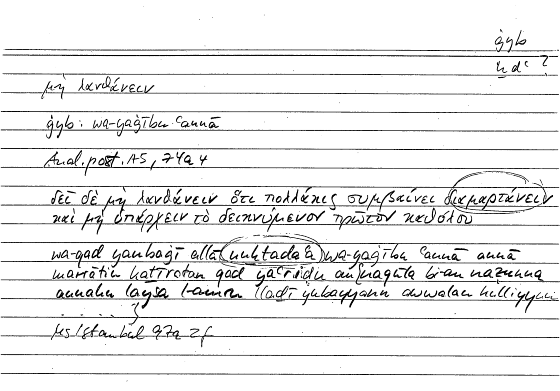 ġyb
ḫdʿ ?
μὴ λανθάνειν
ġyb: wa-yaġību ʿannā
Anal. post. A5, 74a4
δεῖ δὲ μὴ λανθάνειν ὅτι πολλάκις συμβαίνει διαμαρτάνειν
καὶ μὴ ὑπάρχειν τὸ δεικνύμενον πρῶτον καθόλου
wa-qad yanbaġī allā nuḫtadaʿa wa-yaġību ʿannā annā
marrātin kaṯīratan qad yaʿriḍu an naġlaṭa bi-an naẓunna
annahu laysa l-amru llaḏī yubayyanu awwalan kulliyyan
Ms Istanbul 97a 2f